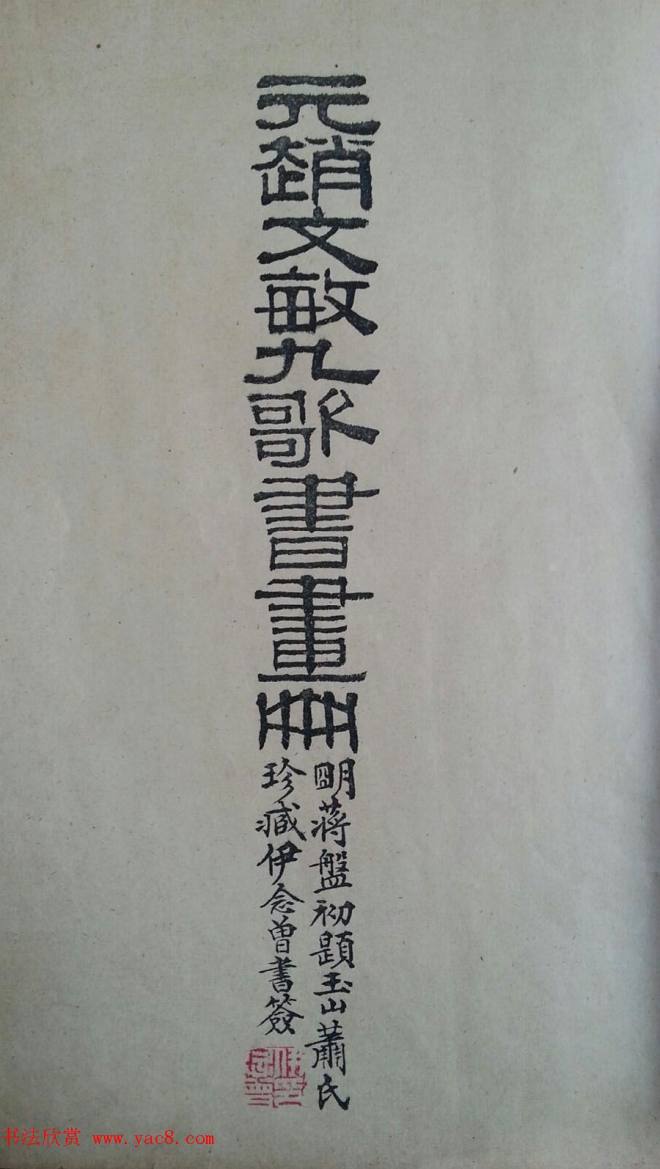 元趙文敏九歌書畫冊
明蔣盤初題玉山蕭氏
珍臧伊念曾書簽
书法欣赏 www.yac8.com